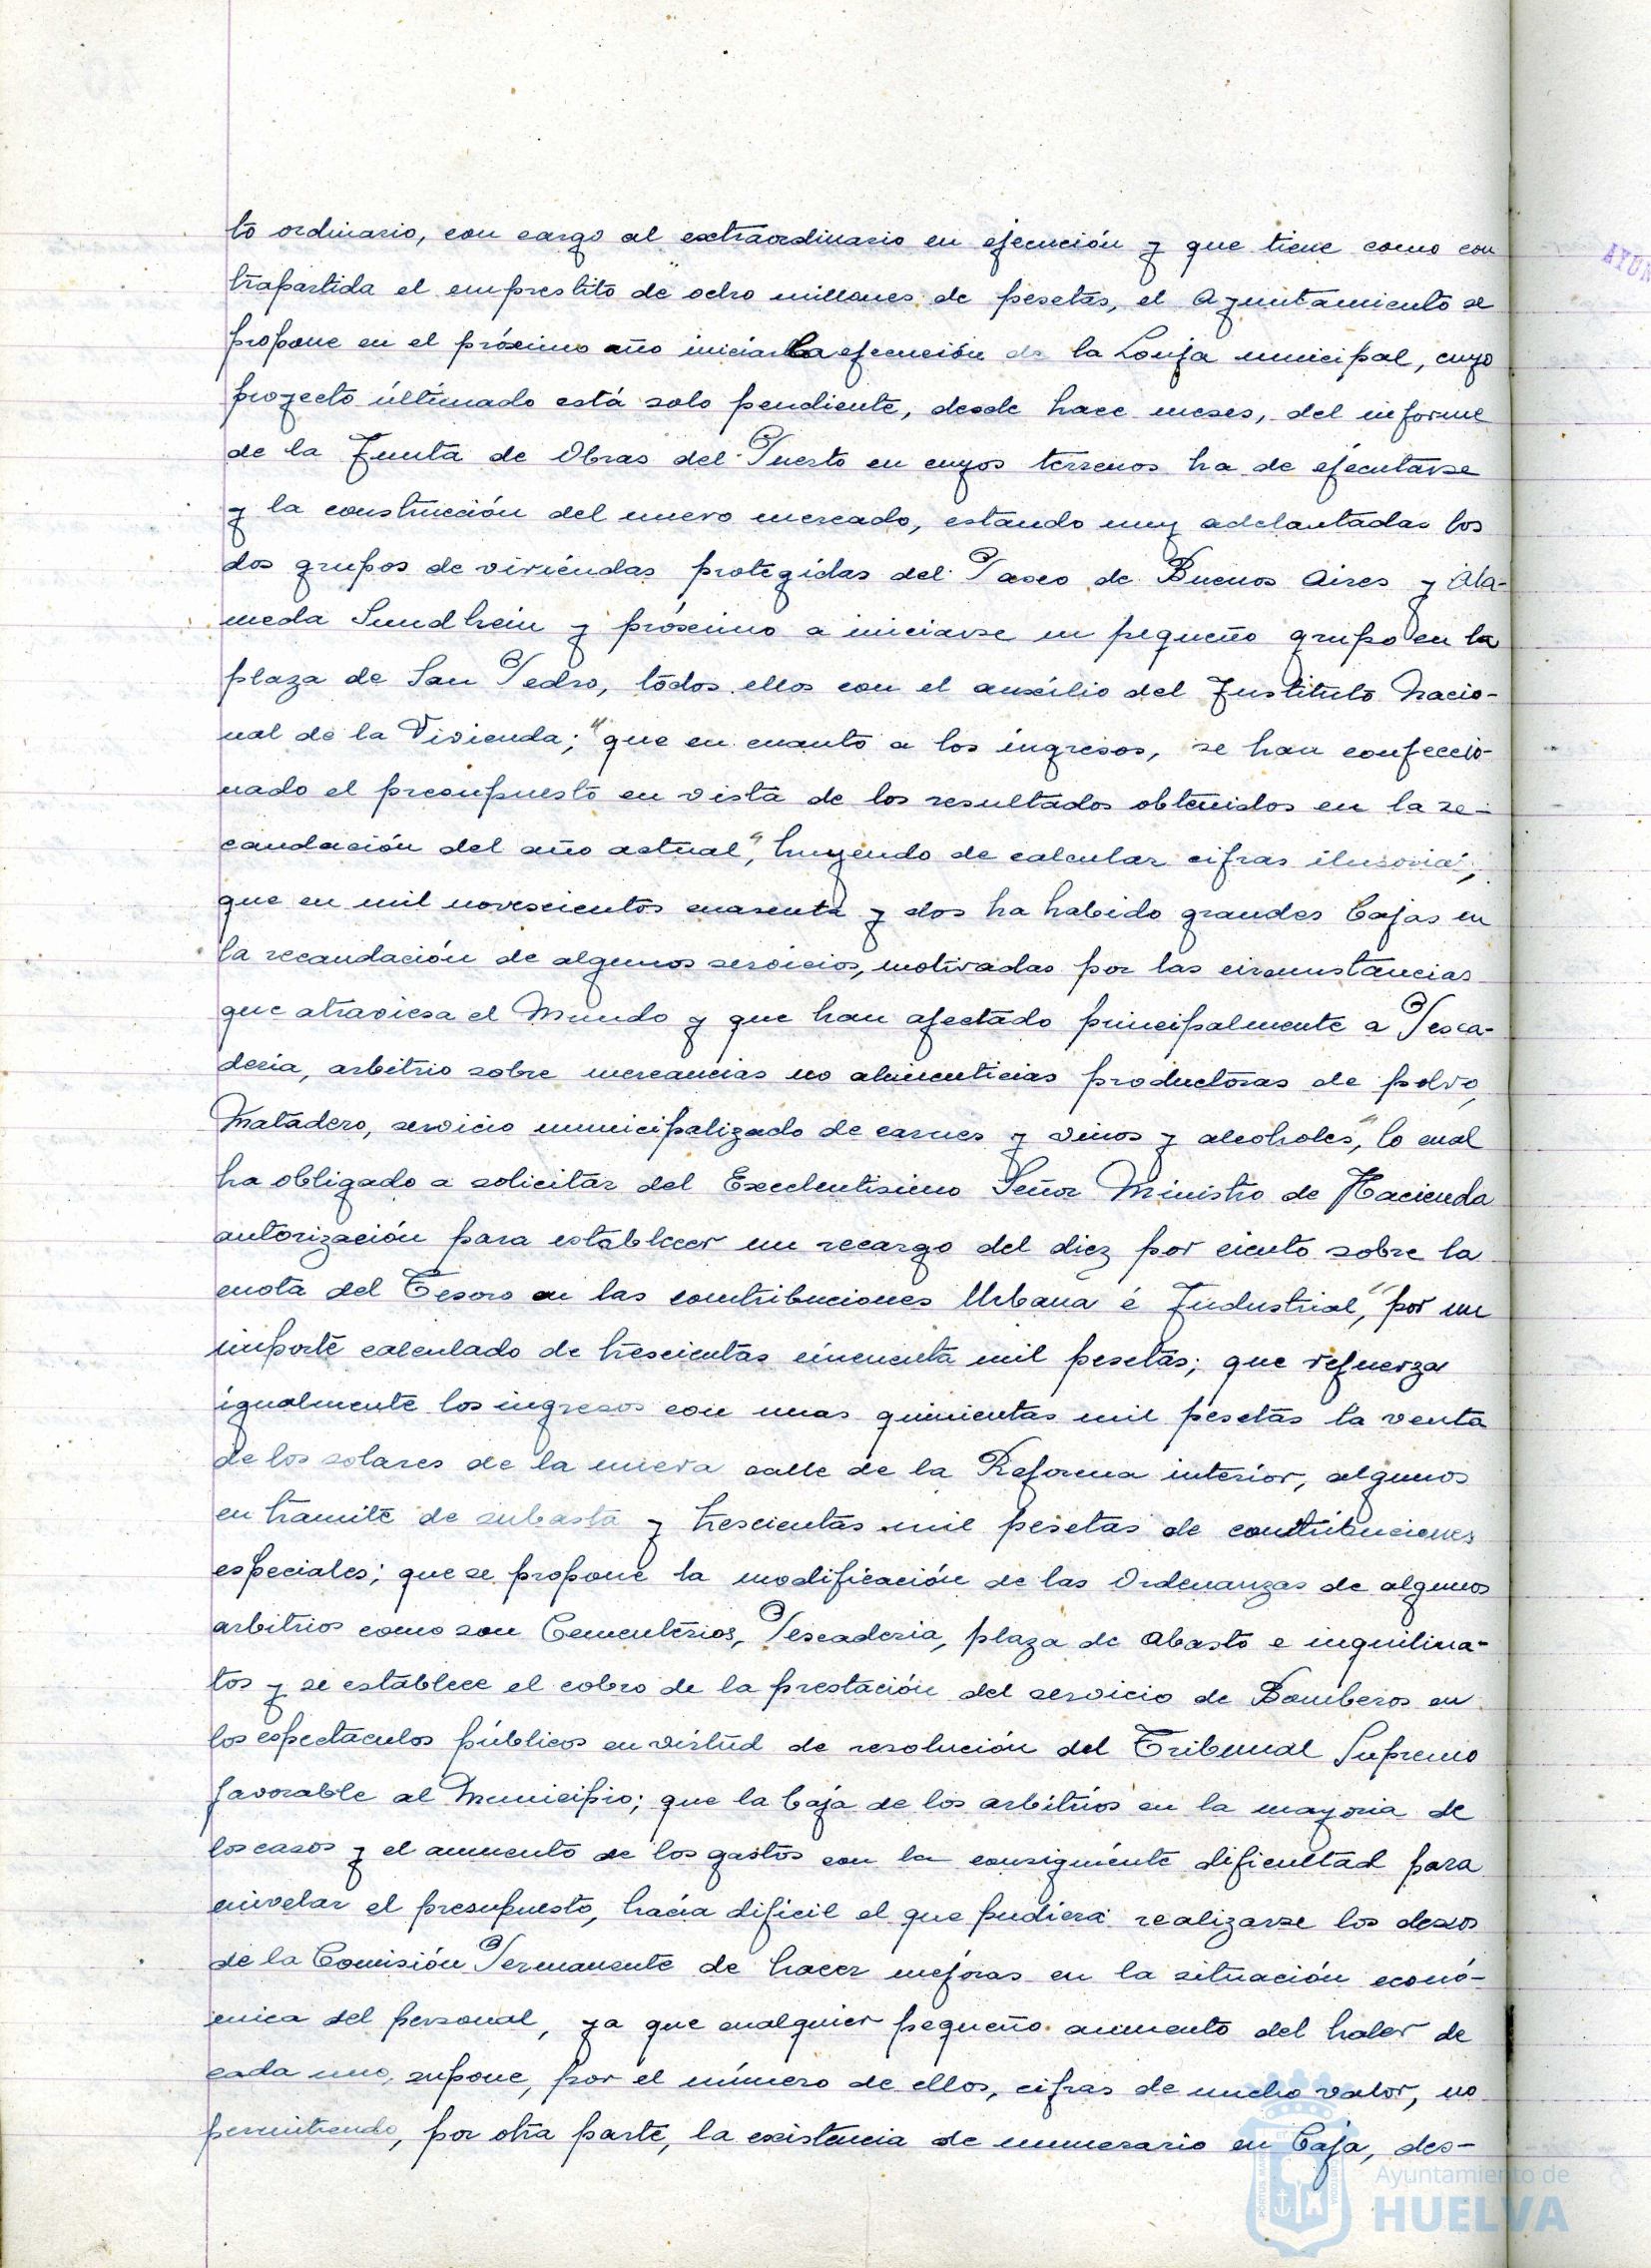 to ordinario, con cargo al extraordinario en ejecución y que tiene como con
trapartida el emprestito de ocho millones de pesetas, el Ayuntamiento se
propone en el próximo año iniciar la ejecución de la Lonja municipal, cuyo
proyecto últimado está solo pendiente, desde hace meses, del informe
de la Junta de Obras del Puerto en cuyos terrenos ha de ejecutarse
y la construcción del nuevo mercado, estando muy adelantadas los
dos grupos de viviendas protegidas del Paseo de Buenos Aires y Ala-
meda Sundhein y próximo a iniciarse un pequeño grupo en la
plaza de San Pedro, todos ellos con el auxilio del Instituto Nacio-
nal de la Vivienda; "que en cuanto a los ingresos, se han confeccio-
nado el presupuesto en vista de los resultados obtenidos en la re-
caudación del año actual", huyendo de calcular cifras ilusoria,
que en mil novescientos cuarenta y dos ha habido grandes bajas en
la recaudación de algunos servicios, motivadas por las circunstancias
que atraviesa el Mundo y que han afectado principalmente a Pesca-
deria, arbitrio sobre mercancias no alimenticias productoras de polvo,
Matadero, servicio municipalizado de carnes y vinos y alcoholes", lo cual
ha obligado a solicitar del Excelentisimo Señor Ministro de Hacienda
autorización para establecer un recargo del diez por ciento sobre la
cuota del Tesoro en las contribuciones Urbana é Industrial", por un
importe calculado de trescientas cincuenta mil pesetas; que refuerza
igualmente los ingresos con unas quinientas mil pesetas la venta
de los solares de la nueva calle de la Reforma interior, algunos
en tramite de subasta y trescientas mil pesetas de contribuciones
especiales; que se propone la modificación de las Ordenanzas de algunos
arbitrios como son Cementerios, Pescaderia, plaza de Abasto e inquilina-
tos y se establece el cobro de la prestación del servicio de Bomberos en
los espectaculos públicos en virtud de resolución del Tribunal Supremo
favorable al Municipio; que la baja de los arbitrios en la mayoria de
los casos y el aumento de los gastos con la consiguiente dificultad para
nivelar el presupuesto, hacia dificil el que pudiera realizarse los deseos
de la Comisión Permanente de hacer mejoras en la situación econó-
mica del personal, ya que cualquier pequeño aumento del haber de
cada uno, supone, por el número de ellos, cifras de mucho valor, no
permitiendo, por otra parte, la existencia de numerario en Caja, des-
Ayuntamiento de
HUELVA